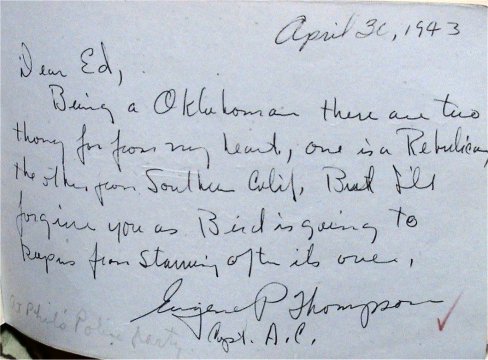 April 30, 1943
Dear Ed,
Being a Oklahoman there are two
thong far from my heart, one is a Rebulican,
the other from Southern Calif. But I'll
forgive you as Bird is going to
keep us from starving after its over.
Eugene P Thompson
Capt. A.C.
Phil's Police party